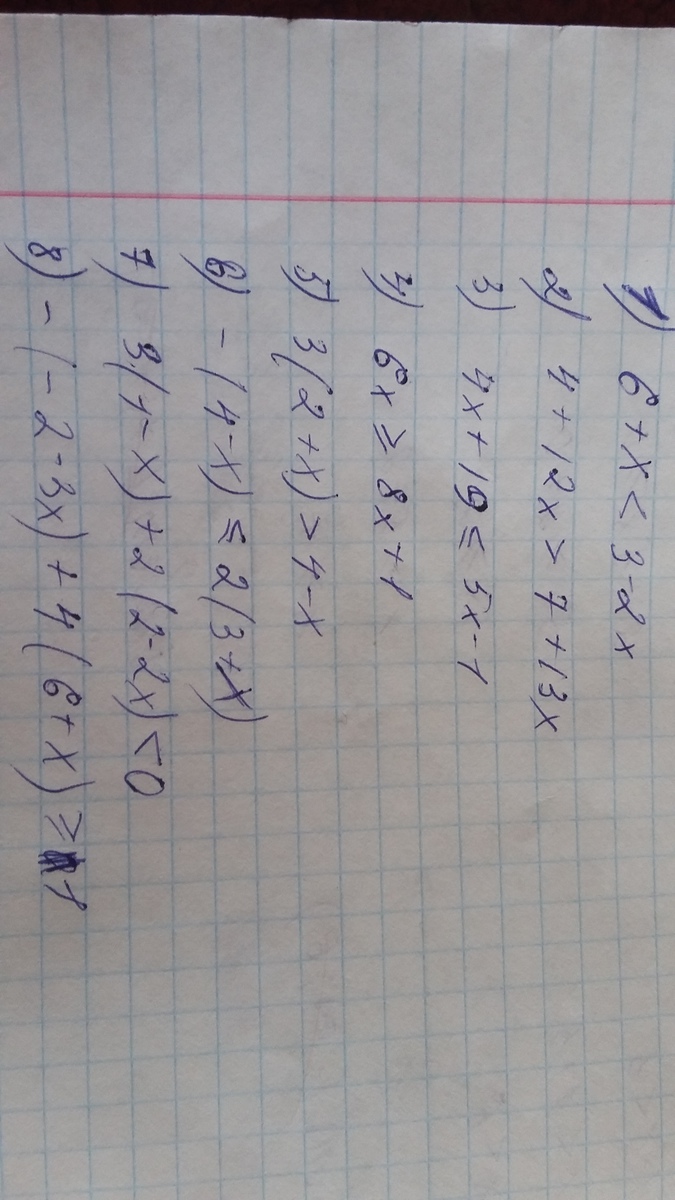 1) 6+x < 3-2x
2) 4+12x > 7+13x
3) 4x+19 ≤ 5x-1
4) 6x ≥ 8x+1
5) 3(2+x) > 4-x
6) -(4-x) ≤ 2(3+x)
7) 3(1-x)+2(2-2x) < 0
8) -(-2-3x)+4(6+x) ≥ 1